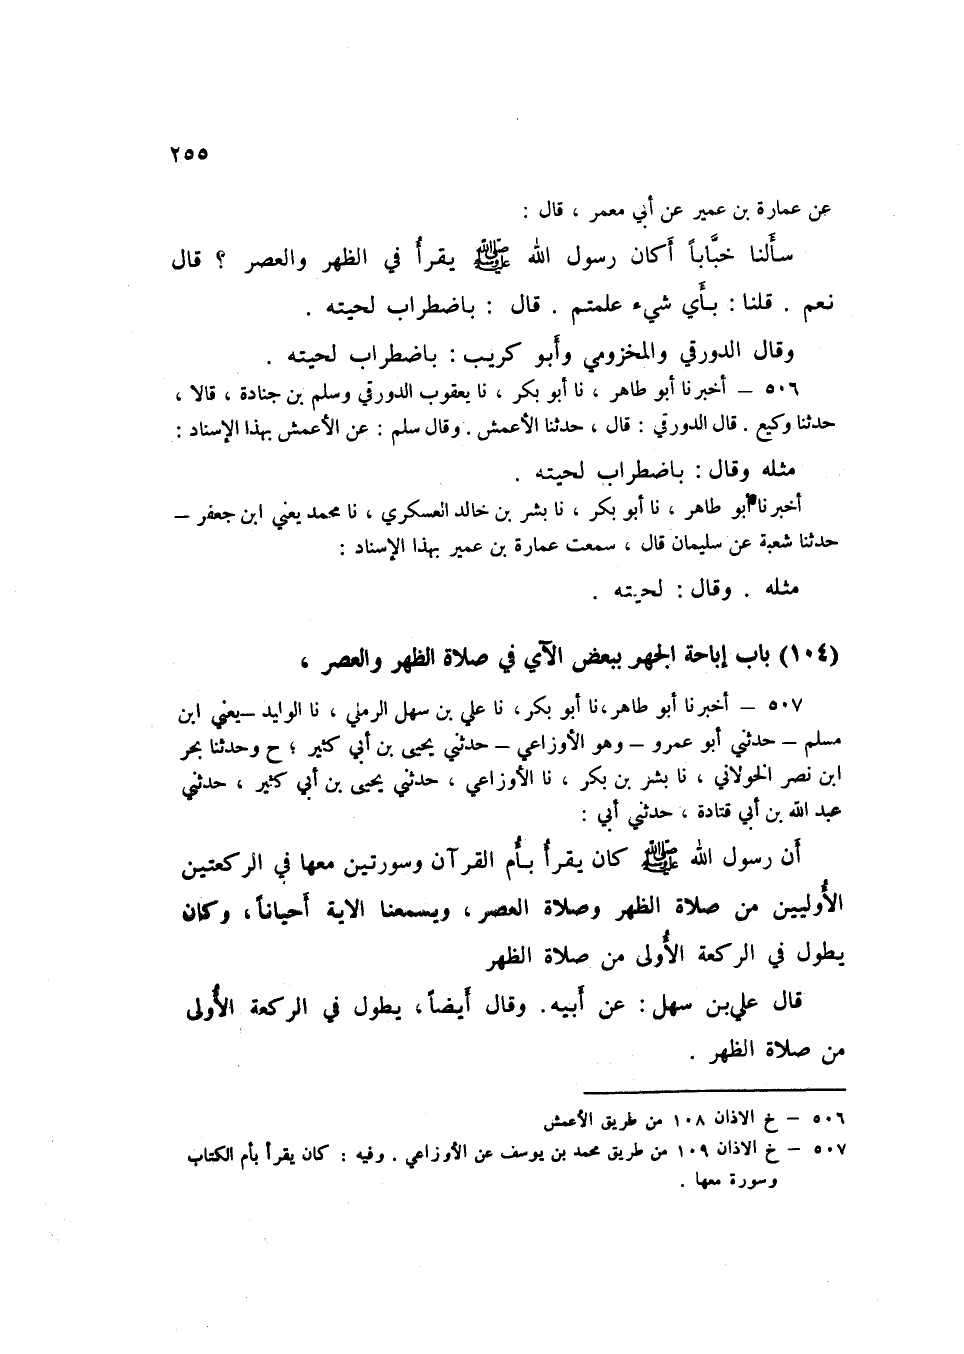 ٢٥٥
عن عمارة بن عمير عن أبي معمر ، قال :
سألنا خبَّاباً أكان رسول الله ﷺ يقرأُ في الظهر والعصر ؟ قال
نعم . قلنا : بأَي شيء علمتم . قال : باضطراب لحيته .
وقال الدورقي والمخزومي وأَبو كريب : باضطراب لحيته .
٥٠٦ – أخبرنا أبو طاهر ، نا أبو بكر ، نا يعقوب الدورقي وسلم بن جنادة ، قالا ،
حدثنا وكيع . قال الدورقي : قال ، حدثنا الأعمش . وقال سلم : عن الأعمش بهذا الإسناد :
مثله وقال : باضطراب لحيته .
أخبرنا أبو طاهر ، نا أبو بكر ، نا بشر بن خالد العسكري ، نا محمد يعني ابن جعفر –
حدثنا شعبة عن سليمان قال ، سمعت عمارة بن عمير بهذا الإسناد :
مثله . وقال : لحيته .
(١٠٤) باب إباحة الجهر ببعض الآي في صلاة الظهر والعصر ،
٥٠٧ – أخبرنا أبو طاهر ،نا أبو بكر، نا علي بن سهل الرملي ، نا الوليد –يعني ابن
مسلم – حدثني أبو عمرو – وهو الأوزاعي – حدثني يحيى بن أبي كثير ؛ ح وحدثنا بحر
ابن نصر الخولاني ، نا بشر بن بكر ، نا الأوزاعي ، حدثني يحيى بن أبي كثير ، حدثني
عبد الله بن أبي قتادة ، حدثني أبي :
أَن رسول الله ﷺ كان يقرأُ بأُم القرآن وسورتين معها في الركعتين
الأُوليين من صلاة الظهر وصلاة العصر، ويسمعنا الاية أَحياناً، وكان
يطول في الركعة الأُولى من صلاة الظهر
قال علي بن سهل : عن أَبيه. وقال أَيضاً، يطول في الركعة الأُولى
من صلاة الظهر .
٥٠٦ – خ الاذان ١٠٨ من طريق الأعمش
٥٠٧ – خ الاذان ١٠٩ من طريق محمد بن يوسف عن الأوزاعي . وفيه : كان يقرأ بأم الكتاب
وسورة معها .